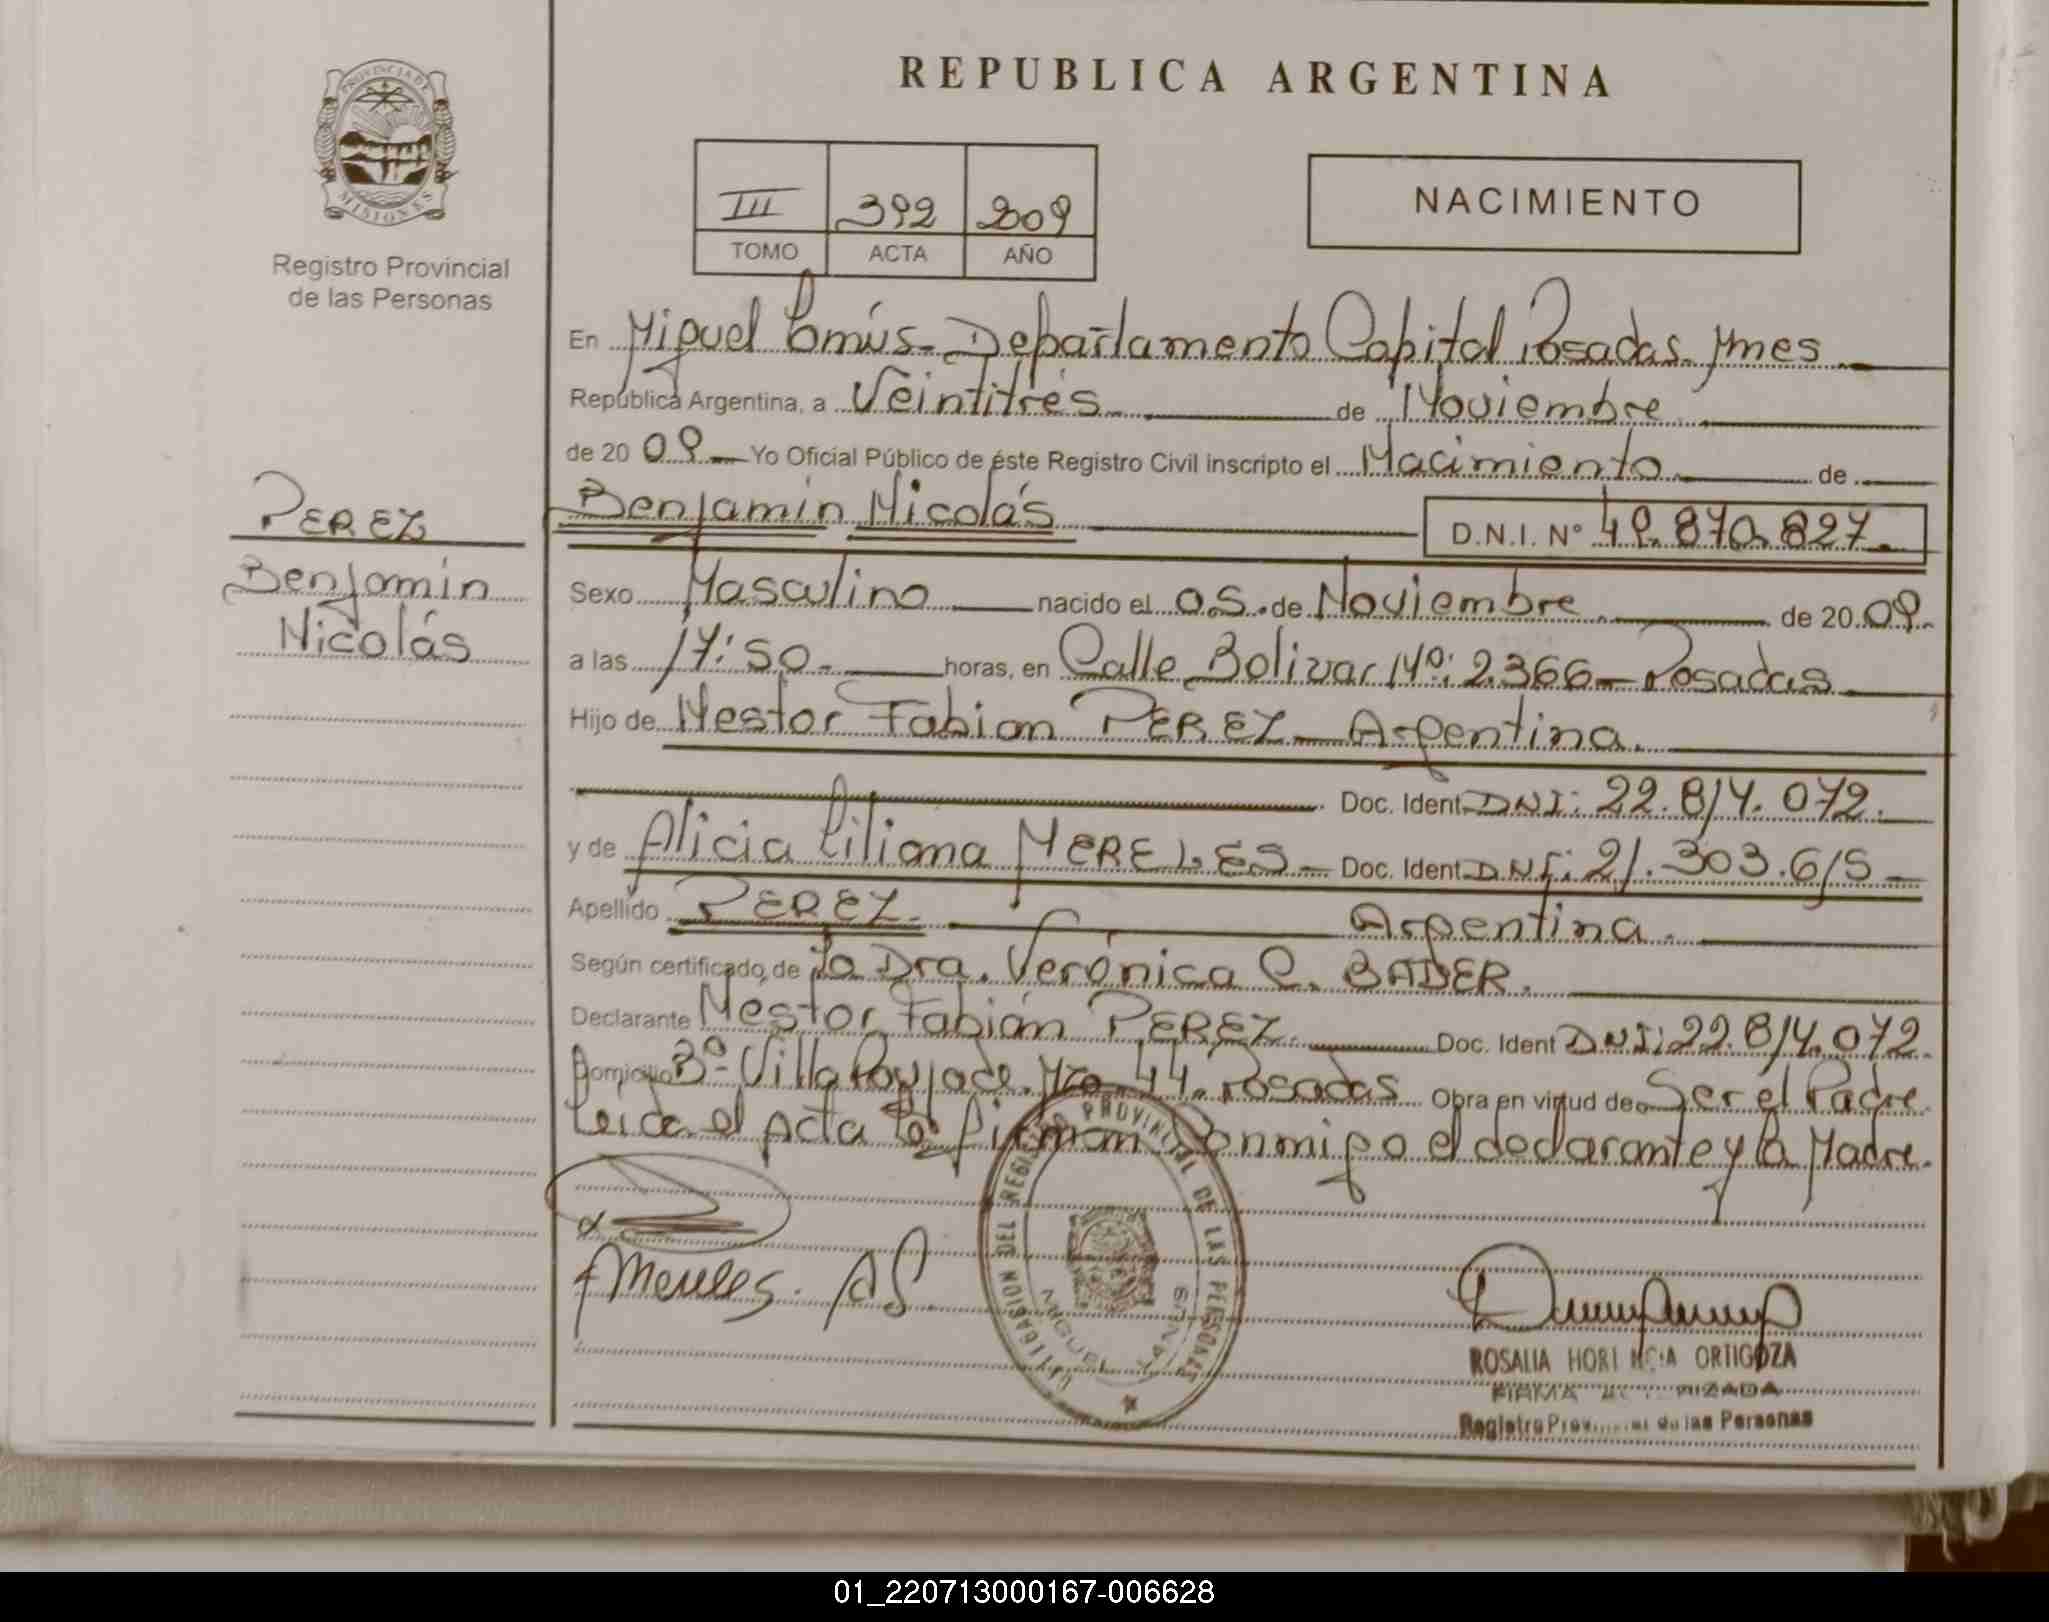 REPUBLICA ARGENTINA
PROVINCIA DE
MISIONES
Registro Provincial
de las Personas
III 392 2009
TOMO ACTA AÑO
NACIMIENTO
En Miguel Lanús - Departamento Capital Posadas Mnes
República Argentina, a Veintitrés de Noviembre
de 20 09 Yo Oficial Público de éste Registro Civil inscripto el Nacimiento de
Benjamin Nicolás D.N.I. Nº 49.870.827.
PEREZ
Benjamin
Nicolás
Sexo Masculino nacido el 05. de Noviembre de 20 09.
a las 17:50 horas, en Calle Bolivar Nº: 2366 - Posadas
Hijo de Nestor Fabian PEREZ - Argentina.
Doc. Ident. DNI: 22.814.072.
y de Alicia Liliana MERELES - Doc. Ident. DNI: 21.303.615 -
Apellido PEREZ. Argentina.
Según certificado de la Dra. Verónica C. BADER.
Declarante Néstor Fabián PEREZ. Doc. Ident DNI: 22.814.072.
Domicilio Bº Villa Poujade. Mza. 44. Posadas Obra en virtud de Ser el Padre
Leida el Acta la firman Conmigo el declarante y la Madre.
DELEGACION DEL REGISTRO PROVINCIAL DE LAS PERSONAS
MIGUEL LANUS
Mereles. A
ROSALIA HORTENCIA ORTIGOZA
FIRMA AUTORIZADA
Registro Provincial de las Personas
01_220713000167-006628